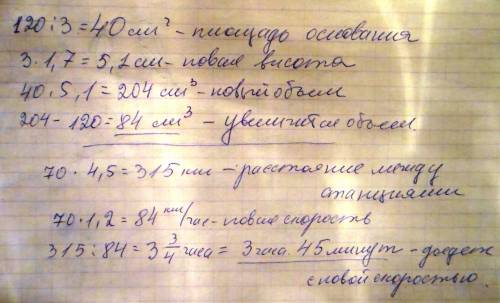 120:3=40 см² - площадь основания
3·1,7=5,1 см - новая высота
40·5,1=204 см³ - новый объем
204-120=84 см³ - увеличится объем.
70·4,5=315 км - расстояние между
станциями
70·1,2=84 км/час - новая скорость
315:84=3 3/4 часа = 3 часа. 45 минут - доедет
с новой скоростью.